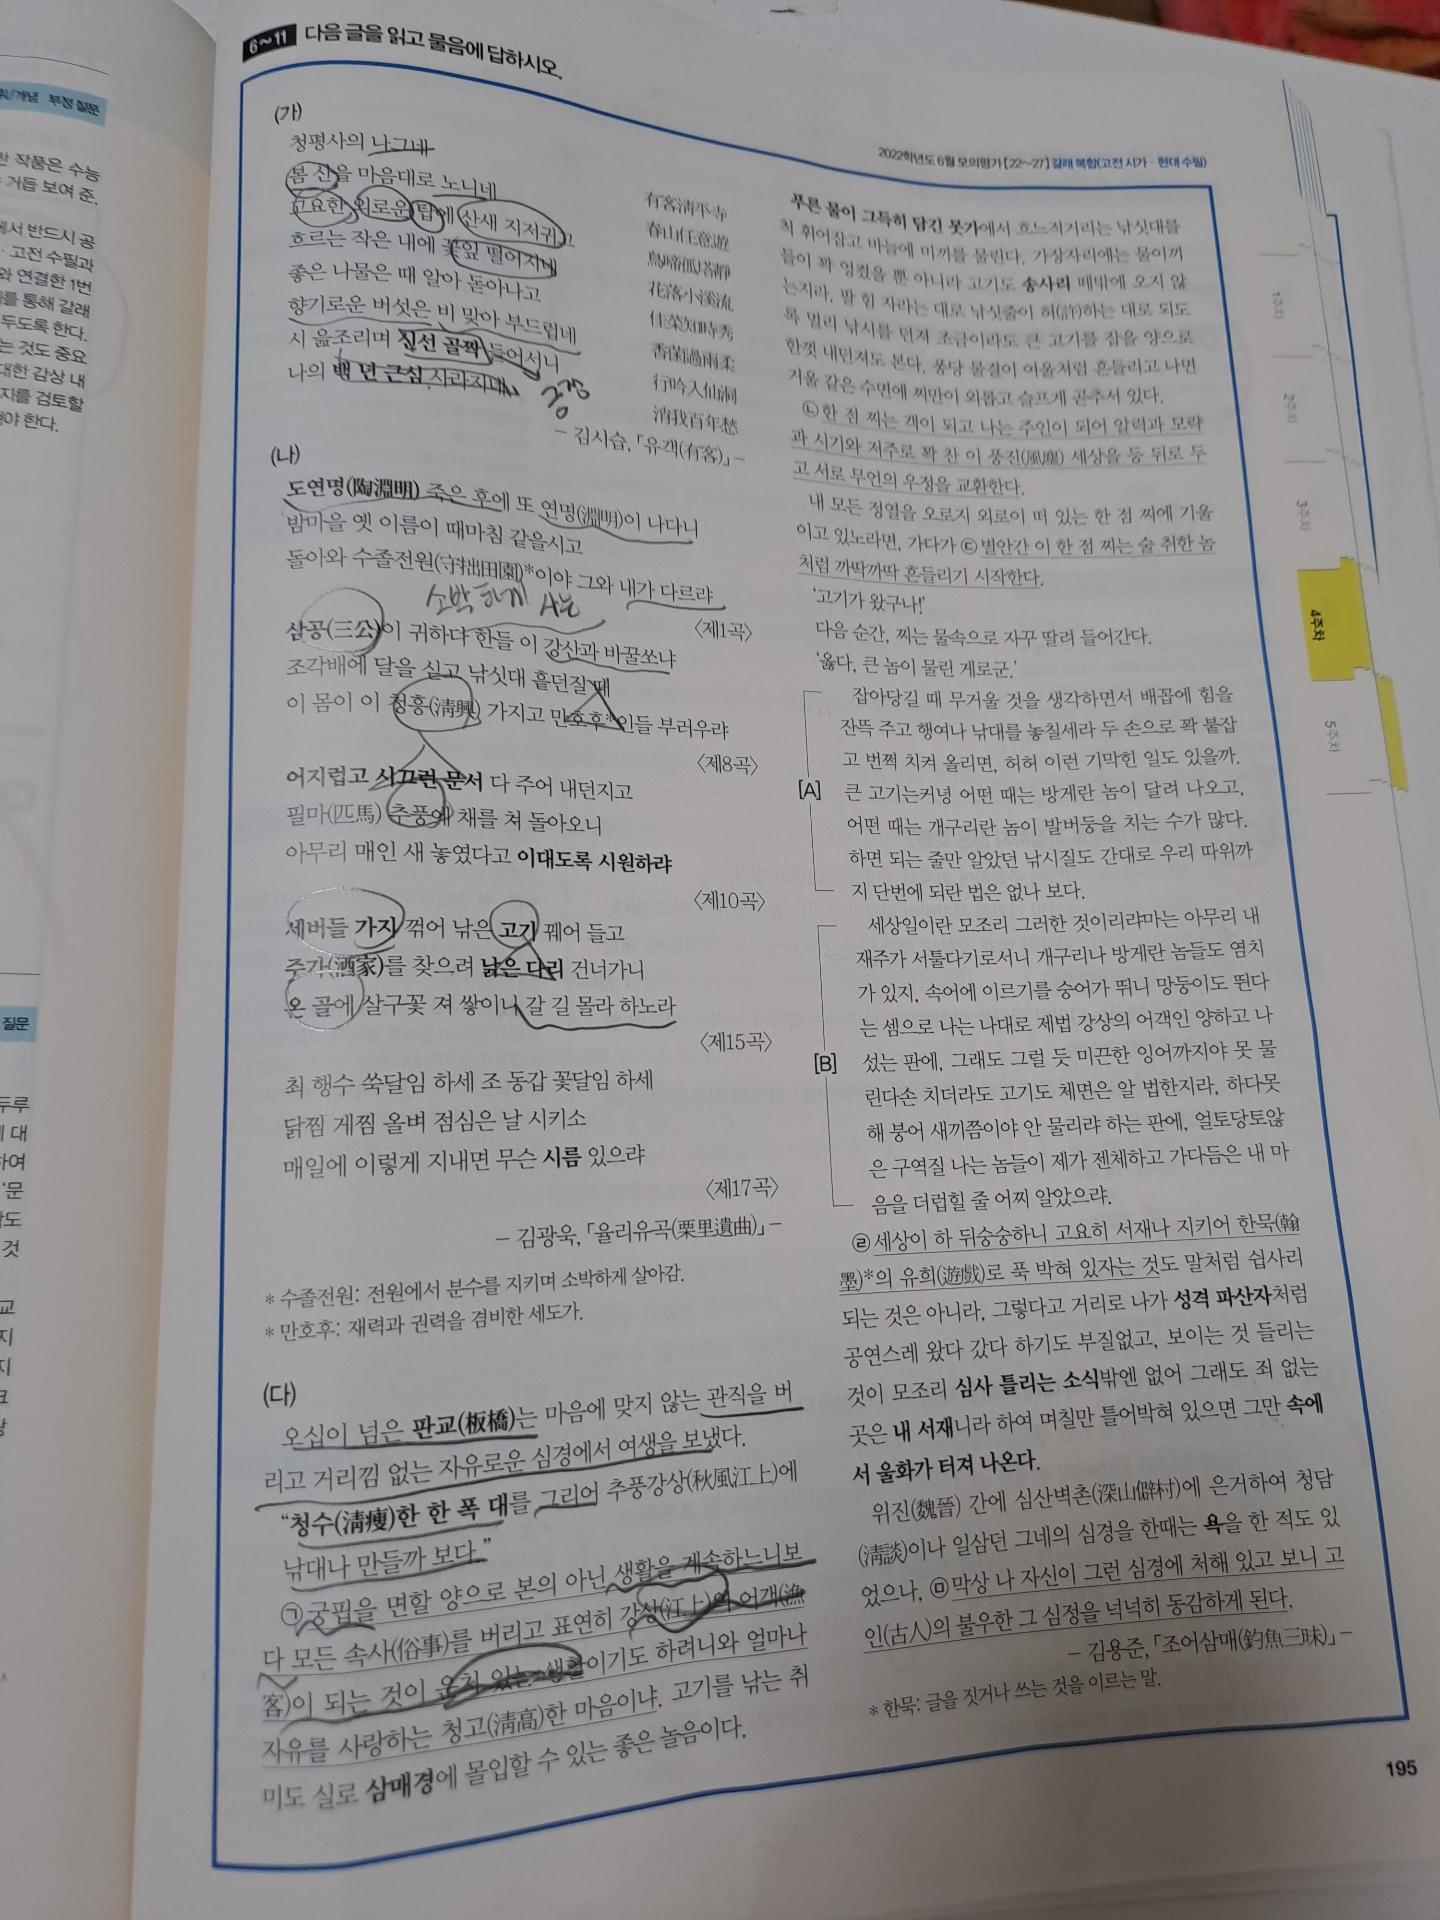 6~11 다음 글을 읽고 물음에 답하시오.
2022학년도 6월 모의평가 [22~27] 갈래 복합(고전 시가·현대 수필)
(가)
청평사의 나그네
봄 산을 마음대로 노니네
고요한 외로운 탑에 산새 지저귀고
흐르는 작은 내에 꽃잎 떨어지네
좋은 나물은 때 알아 돋아나고
향기로운 버섯은 비 맞아 부드럽네
시 읊조리며 신선 골짝 들어서니
나의 백 년 근심 사라지네
긍정
有客淸平寺
春山任意遊
鳥啼孤塔靜
花落小溪流
佳菜知時秀
香菌過雨柔
行吟入仙洞
消我百年愁
- 김시습, 「유객(有客)」 -
(나)
도연명(陶淵明) 죽은 후에 또 연명(淵明)이 나다니
밤마을 옛 이름이 때마침 같을시고
돌아와 수졸전원(守拙田園)*이야 그와 내가 다르랴
소박하게 사는
〈제1곡〉
삼공(三公)이 귀하다 한들 이 강산과 바꿀쏘냐
조각배에 달을 싣고 낚싯대 흩던질 때
이 몸이 이 청흥(淸興) 가지고 만호후*인들 부러우랴
〈제8곡〉
어지럽고 시끄런 문서 다 주어 내던지고
필마(匹馬) 추풍에 채를 쳐 돌아오니
아무리 매인 새 놓였다고 이대도록 시원하랴
〈제10곡〉
세버들 가지 꺾어 낚은 고기 꿰어 들고
주가(酒家)를 찾으려 낡은 다리 건너가니
온 골에 살구꽃 져 쌓이니 갈 길 몰라 하노라
〈제15곡〉
최 행수 쑥달임 하세 조 동갑 꽃달임 하세
닭찜 게찜 올벼 점심은 날 시키소
매일에 이렇게 지내면 무슨 시름 있으랴
〈제17곡〉
- 김광욱, 「율리유곡(栗里遺曲)」 -
* 수졸전원: 전원에서 분수를 지키며 소박하게 살아감.
* 만호후: 재력과 권력을 겸비한 세도가.
(다)
오십이 넘은 판교(板橋)는 마음에 맞지 않는 관직을 버
리고 거리낌 없는 자유로운 심경에서 여생을 보냈다.
“청수(淸瘦)한 한 폭 대를 그리어 추풍강상(秋風江上)에
낚대나 만들까 보다.”
㉠궁핍을 면할 양으로 본의 아닌 생활을 계속하느니보
다 모든 속사(俗事)를 버리고 표연히 강상(江上)의 어객(漁
客)이 되는 것이 운치 있는 생활이기도 하려니와 얼마나
자유를 사랑하는 청고(淸高)한 마음이냐. 고기를 낚는 취
미도 실로 삼매경에 몰입할 수 있는 좋은 놀음이다.
푸른 물이 그득히 담긴 못가에서 흐느적거리는 낚싯대를
척 휘어잡고 바늘에 미끼를 물린다. 가장자리에는 물이끼
들이 꽉 엉켰을 뿐 아니라 고기도 송사리 떼밖에 오지 않
는지라, 팔 힘 자라는 대로 낚싯줄이 허(許)하는 대로 되도
록 멀리 낚시를 던져 조금이라도 큰 고기를 잡을 양으로
한껏 내던져도 본다. 퐁당 물결이 여울처럼 흔들리고 나면
거울 같은 수면에 찌만이 외롭고 슬프게 곧추서 있다.
㉡한 점 찌는 객이 되고 나는 주인이 되어 알력과 모략
과 시기와 저주로 꽉 찬 이 풍진(風塵) 세상을 등 뒤로 두
고 서로 무언의 우정을 교환한다.
내 모든 정열을 오로지 외로이 떠 있는 한 점 찌에 기울
이고 있노라면, 가다가 ㉢별안간 이 한 점 찌는 술 취한 놈
처럼 까딱까딱 흔들리기 시작한다.
‘고기가 왔구나!’
다음 순간, 찌는 물속으로 자꾸 딸려 들어간다.
‘옳다, 큰 놈이 물린 게로군.’
잡아당길 때 무거울 것을 생각하면서 배꼽에 힘을
잔뜩 주고 행여나 낚대를 놓칠세라 두 손으로 꽉 붙잡
고 번쩍 치켜 올리면, 허허 이런 기막힌 일도 있을까.
[A] 큰 고기는커녕 어떤 때는 방게란 놈이 달려 나오고,
어떤 때는 개구리란 놈이 발버둥을 치는 수가 많다.
하면 되는 줄만 알았던 낚시질도 간대로 우리 따위까
지 단번에 되란 법은 없나 보다.
세상일이란 모조리 그러한 것이리랴마는 아무리 내
재주가 서툴다기로서니 개구리나 방게란 놈들도 염치
가 있지, 속어에 이르기를 숭어가 뛰니 망둥이도 뛴다
는 셈으로 나는 나대로 제법 강상의 어객인 양하고 나
[B] 섰는 판에, 그래도 그럴 듯 미끈한 잉어까지야 못 물
린다손 치더라도 고기도 체면은 알 법한지라, 하다못
해 붕어 새끼쯤이야 안 물리랴 하는 판에, 얼토당토않
은 구역질 나는 놈들이 제가 젠체하고 가다듬은 내 마
음을 더럽힐 줄 어찌 알았으랴.
㉣세상이 하 뒤숭숭하니 고요히 서재나 지키어 한묵(翰
墨)*의 유희(遊戱)로 푹 박혀 있자는 것도 말처럼 쉽사리
되는 것은 아니라, 그렇다고 거리로 나가 성격 파산자처럼
공연스레 왔다 갔다 하기도 부질없고, 보이는 것 들리는
것이 모조리 심사 틀리는 소식밖엔 없어 그래도 죄 없는
곳은 내 서재니라 하여 며칠만 틀어박혀 있으면 그만 속에
서 울화가 터져 나온다.
위진(魏晉) 간에 심산벽촌(深山僻村)에 은거하여 청담
(淸談)이나 일삼던 그네의 심경을 한때는 욕을 한 적도 있
었으나, ㉤막상 나 자신이 그런 심경에 처해 있고 보니 고
인(古人)의 불우한 그 심정을 넉넉히 동감하게 된다.
- 김용준, 「조어삼매(釣魚三昧)」 -
* 한묵: 글을 짓거나 쓰는 것을 이르는 말.
195
1주차
2주차
3주차
4주차
5주차
개념 부정 질문
작품은 수능
거듭 보여 준.
에서 반드시 공
고전 수필과
와 연결한 1번
를 통해 갈래
두도록 한다.
는 것도 중요
대한 감상 내
지를 검토할
야 한다.
질문
두루
대
하여
문
것
교
지